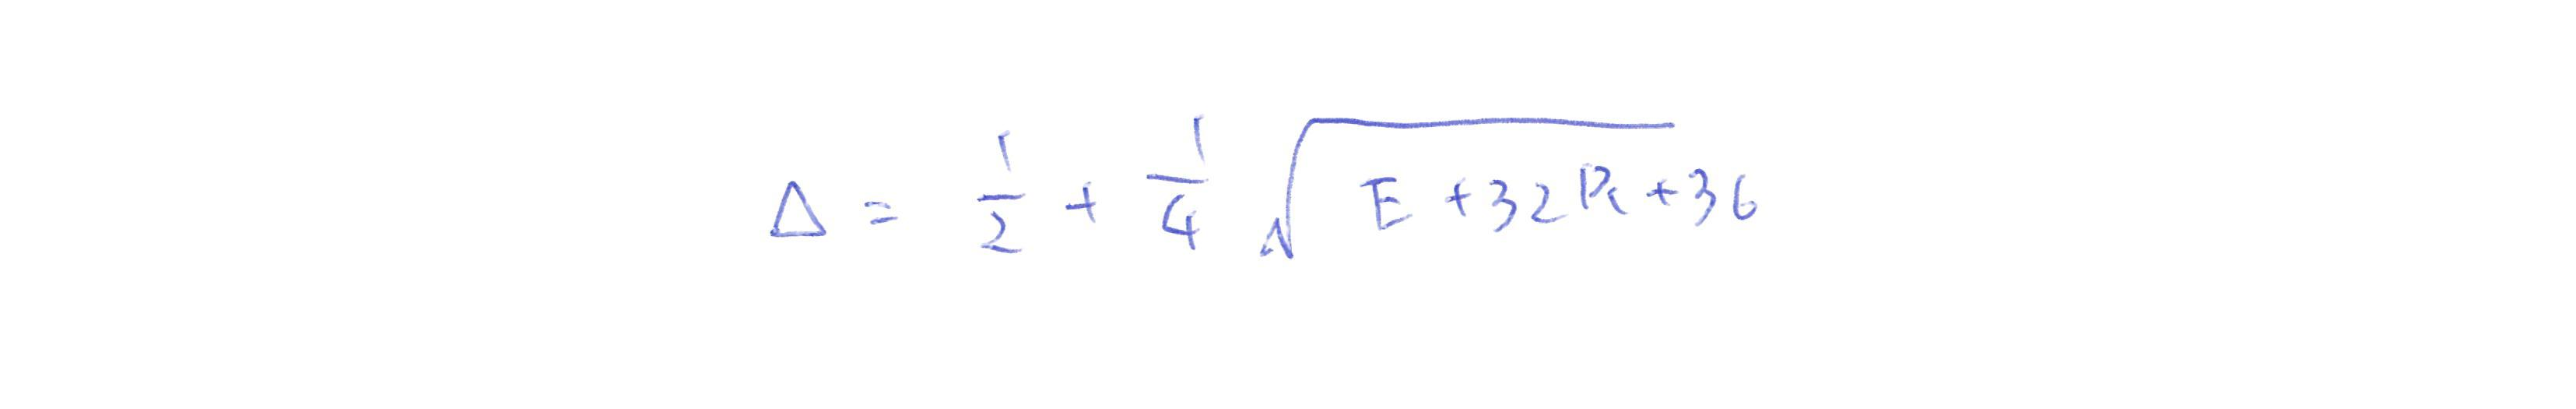 Δ = 1/2 + 1/4 √(E + 32R + 36)